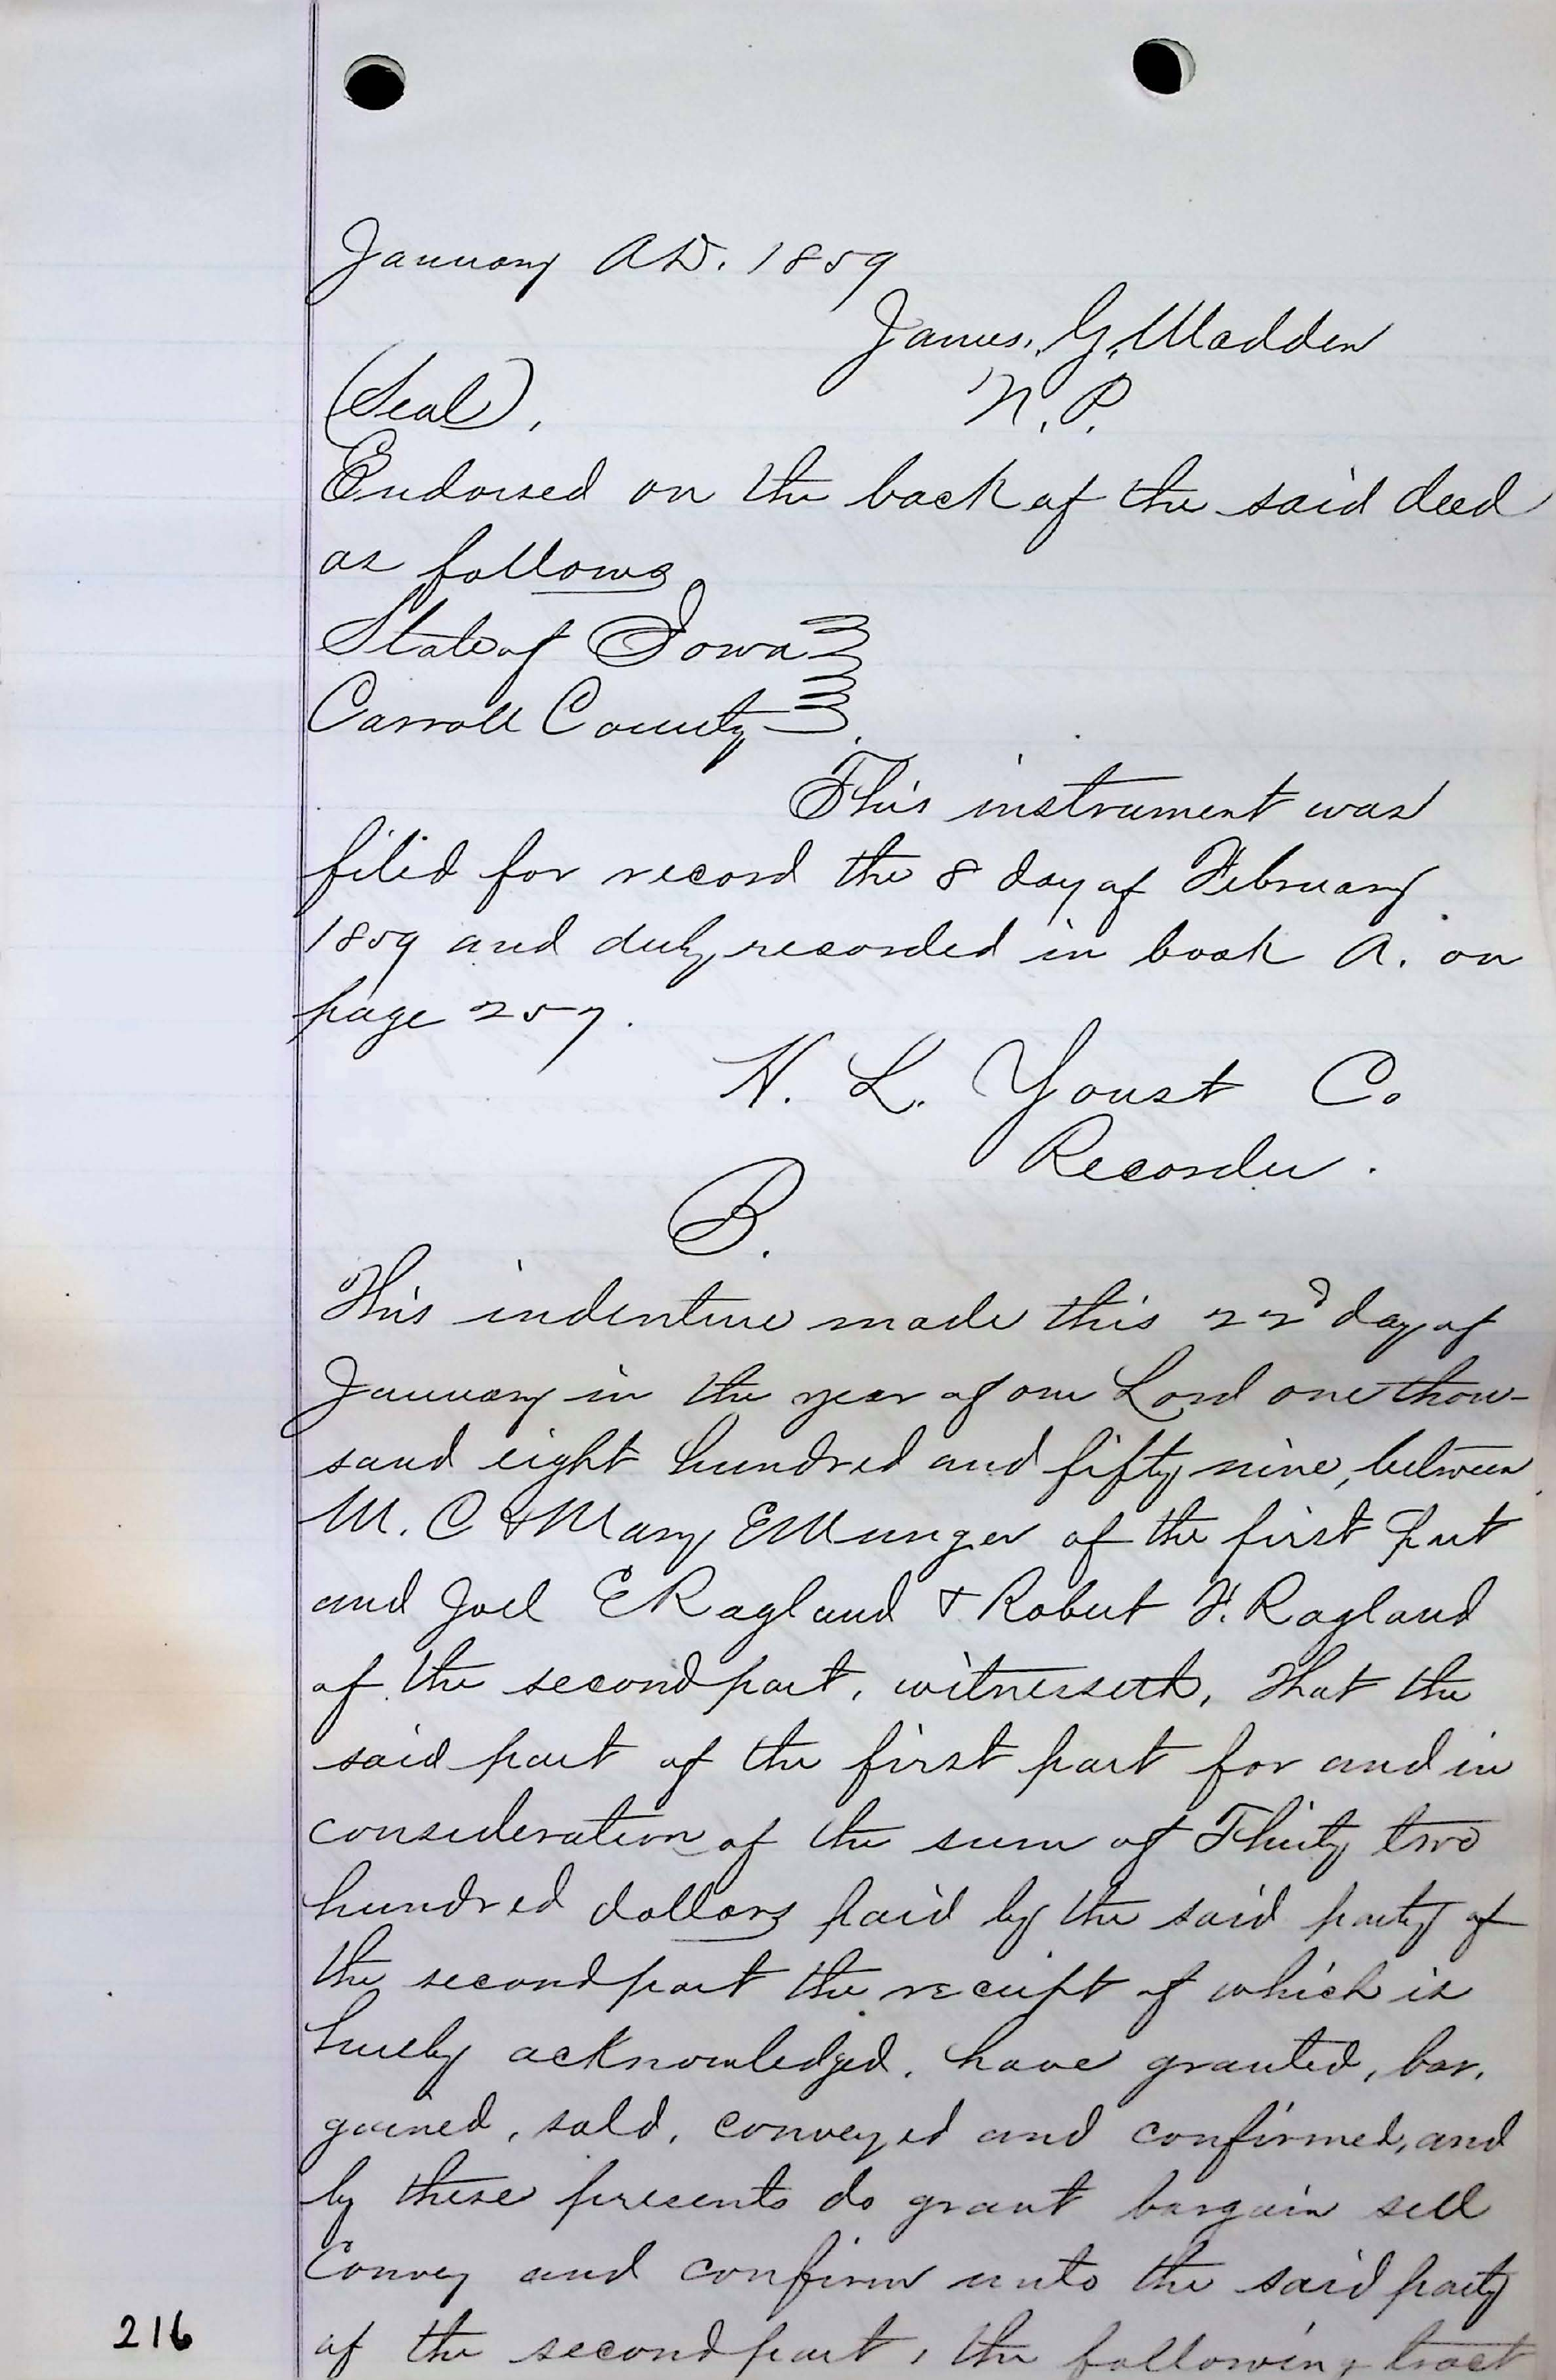 January A.D. 1859
James. G. Madden
(Seal), N. P.
Endorsed on the back of the said deed
as follows
State of Iowa
Carroll County
This instrument was
filed for record the 8 day of February
1859 and duly recorded in book A. on
page 257.
H. L. Youst Co.
Recorder.
B.
This indenture made this 22d day of
January in the year of our Lord one thou-
sand eight hundred and fifty nine, between
M. C & Mary E Munger of the first part
and Joel E Ragland & Robert F. Ragland
of the second part, witnesseth, That the
said part of the first part for and in
consideration of the sum of Thirty two
hundred dollars paid by the said party of
the second part the receipt of which is
hereby acknowledged, have granted, bar,
gained, sold, conveyed and confirmed, and
by these presents do grant bargain sell
Convey and confirm unto the said party
216 of the second part, the following tract